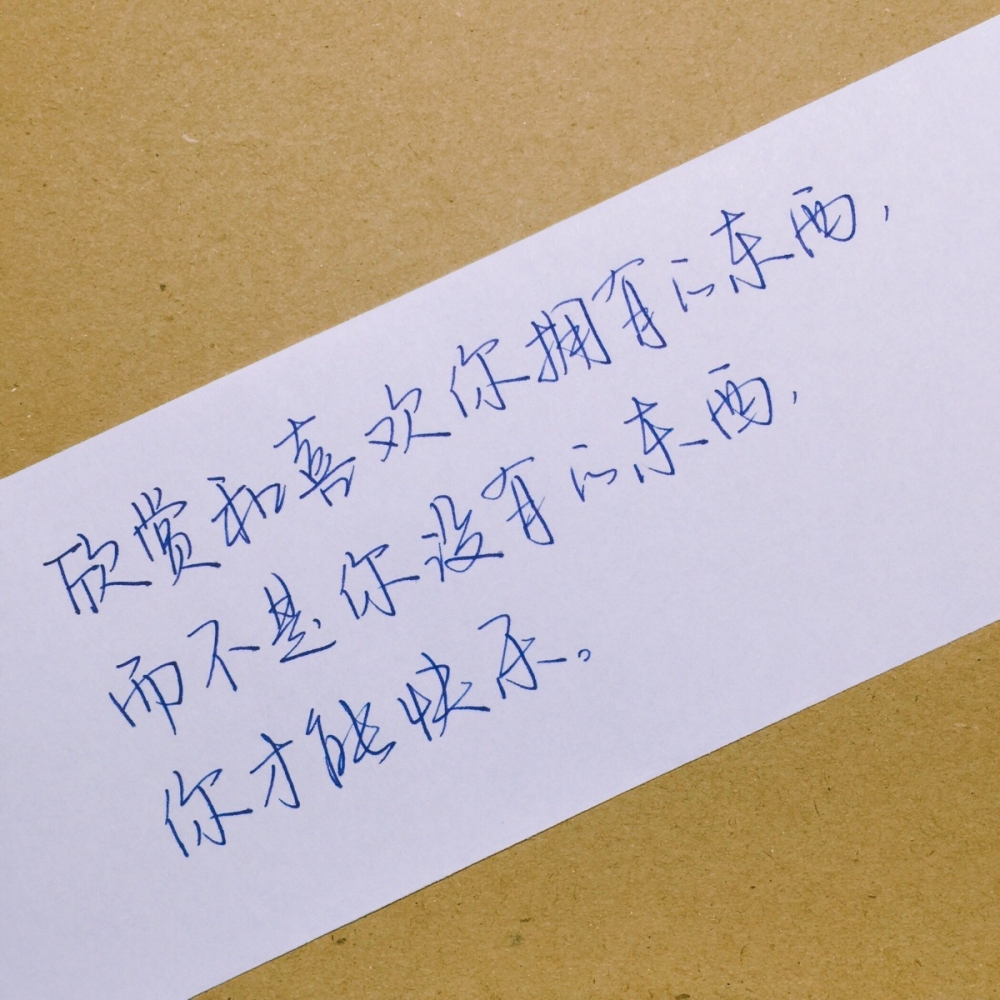 欣赏和喜欢你拥有的东西,
而不是你没有的东西,
你才能快乐。